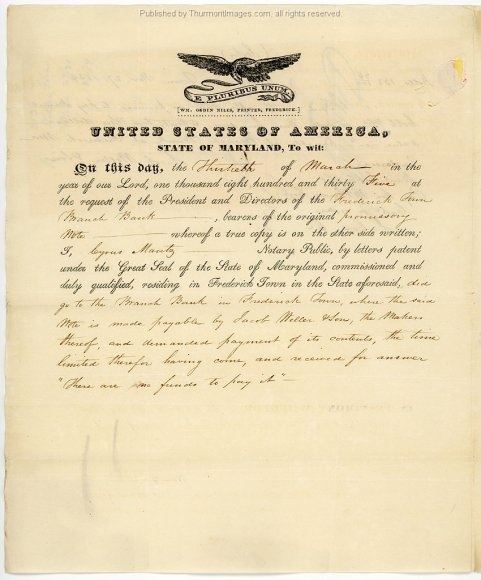 Published by ThurmontImages.com, all rights reserved.
E PLURIBUS UNUM.
[WM. OGDEN NILES, PRINTER, FREDERICK.]
UNITED STATES OF AMERICA,
STATE OF MARYLAND, To wit:
On this day, the Thirtieth of March in the
year of our Lord, one thousand eight hundred and thirty Five at
the request of the President and Directors of the Frederick Town
Branch Bank, bearers of the original promissory
Note whereof a true copy is on the other side written;
I, Cyrus Mantz Notary Public, by letters patent
under the Great Seal of the State of Maryland, commissioned and
duly qualified, residing in Frederick Town in the State aforesaid, did
go to the Branch Bank in Frederick Town, where the said
Note is made payable by Jacob Weller & Son, the Makers
thereof, and demanded payment of its contents, the time
limited therefor having come, and received for answer
"There are no funds to pay it"